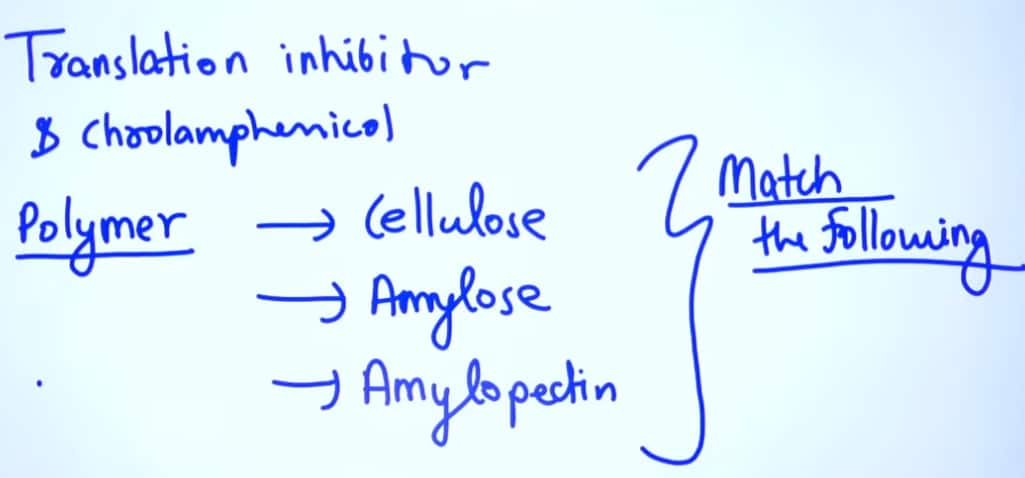 Translation inhibitor
$ Chrolamphenicol
Polymer → Cellulose
→ Amylose
→ Amylopectin
Match
the following